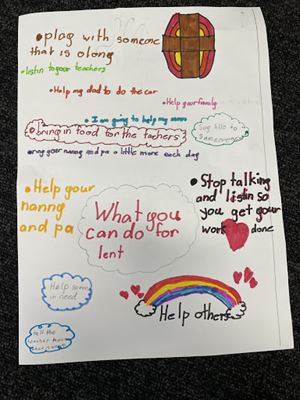 •plag with someone
that is olong
•listin to your teachers
•Help my dad to do the car
•Help your family
•I am going to help my
•bring in food for the tachers
Say hillo to
someone
nanny and pa a little more each day
•Help your
nanng
and pa
•Stop talking
and listin so
you get your
work done
What you
can do for
lent
Help some
in need
Help others
tell the
teacher